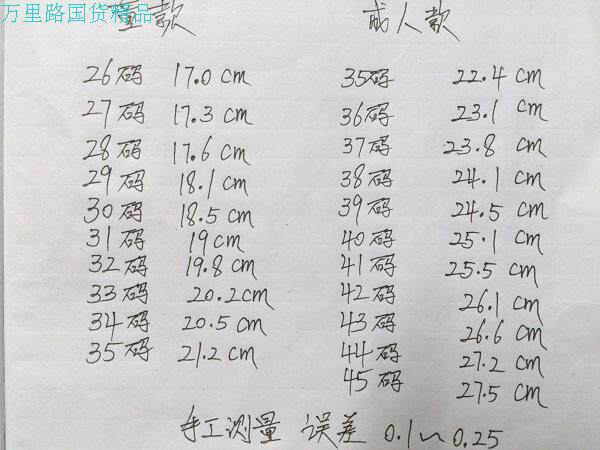 万里路国货精品
童款
26码 17.0 cm
27码 17.3 cm
28码 17.6 cm
29码 18.1 cm
30码 18.5 cm
31码 19 cm
32码 19.8 cm
33码 20.2 cm
34码 20.5 cm
35码 21.2 cm
成人款
35码 22.4 cm
36码 23.1 cm
37码 23.8 cm
38码 24.1 cm
39码 24.5 cm
40码 25.1 cm
41码 25.5 cm
42码 26.1 cm
43码 26.6 cm
44码 27.2 cm
45码 27.5 cm
手工测量 误差 0.1~0.25